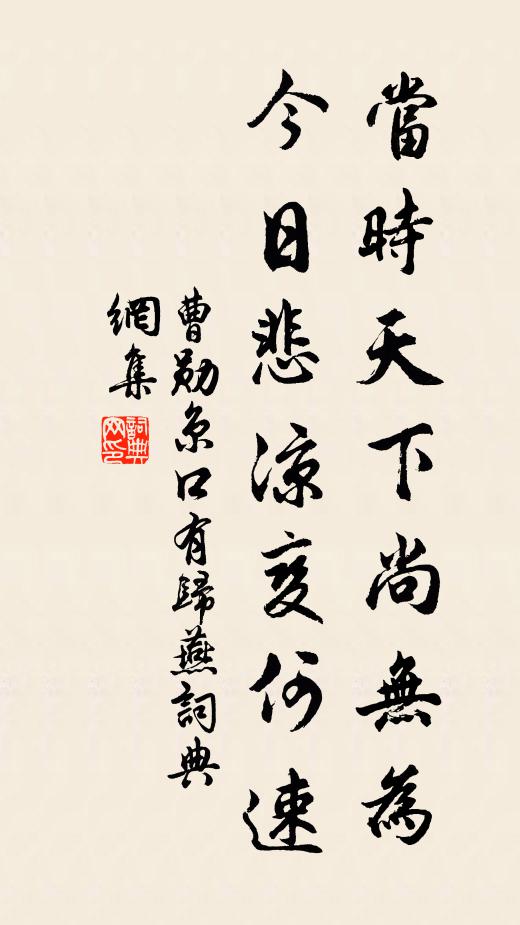 當時天下尚無為
今日悲涼变何速
曹勛京口有歸燕詞典
網集
詞典網印